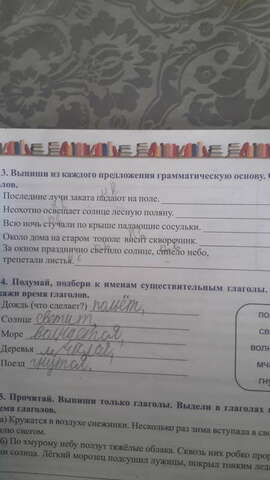 3. Выпиши из каждого предложения грамматическую основу. О
лов.
Последние лучи заката падают на поле.
Неохотно освещает солнце лесную поляну.
Всю ночь стучали по крыше падающие сосульки.
Около дома на старом тополе висит скворечник.
За окном празднично светило солнце, синело небо,
трепетали листья.
4. Подумай, подбери к именам существительным глаголы.
кажи время глаголов.
Дождь (что делает?) польёт,
Солнце светит,
Море
Деревья
Поезд гнутся,
ПО
СВ
ВОЛН
МЧ
ГН
5. Прочитай. Выпиши только глаголы. Выдели в глаголах
емя глаголов.
а) Кружатся в воздухе снежинки. Несколько раз зима вступала в св
ло снегом.
б) По хмурому небу ползут тяжёлые облака. Сквозь них робко прор
и солнца. Лёгкий морозец подсушил лужицы, покрыл тонким лед